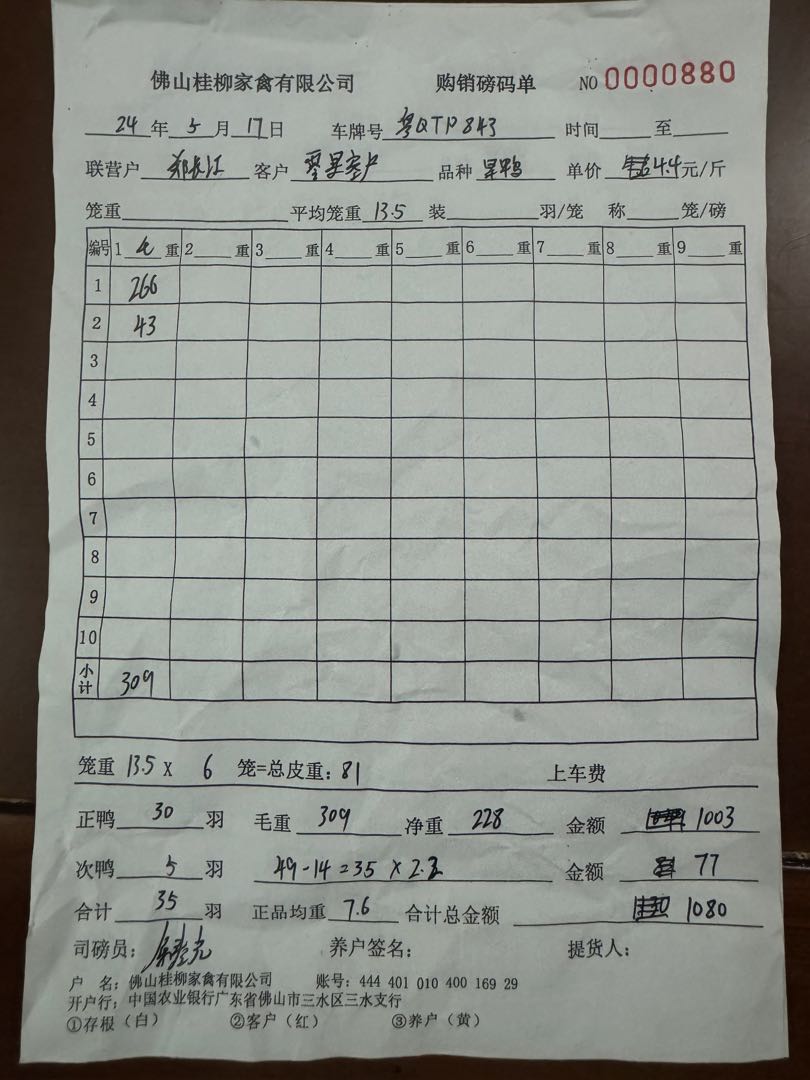 佛山桂柳家禽有限公司 购销磅码单 NO 0000880
24年5月17日 车牌号 粤QTP843 时间 至
联营户 郑长江 客户 零星客户 品种 单价 4.4元/斤
笼重 平均笼重 13.5 装 羽/笼 称 笼/磅
编号 1 重 2 重 3 重 4 重 5 重 6 重 7 重 8 重 9 重
1 266
2 43
3
4
5
6
7
8
9
10
小计 309
笼重 13.5 X 6 笼=总皮重: 81 上车费
正鸭 30 羽 毛重 309 净重 228 金额 1003
次鸭 5 羽 49-14=35 X 2.2 金额 77
合计 35 羽 正品均重 7.6 合计总金额 1080
司磅员: 养户签名: 提货人:
户 名: 佛山桂柳家禽有限公司 账号: 444 401 010 400 169 29
开户行: 中国农业银行广东省佛山市三水区三水支行
①存根(白) ②客户(红) ③养户(黄)